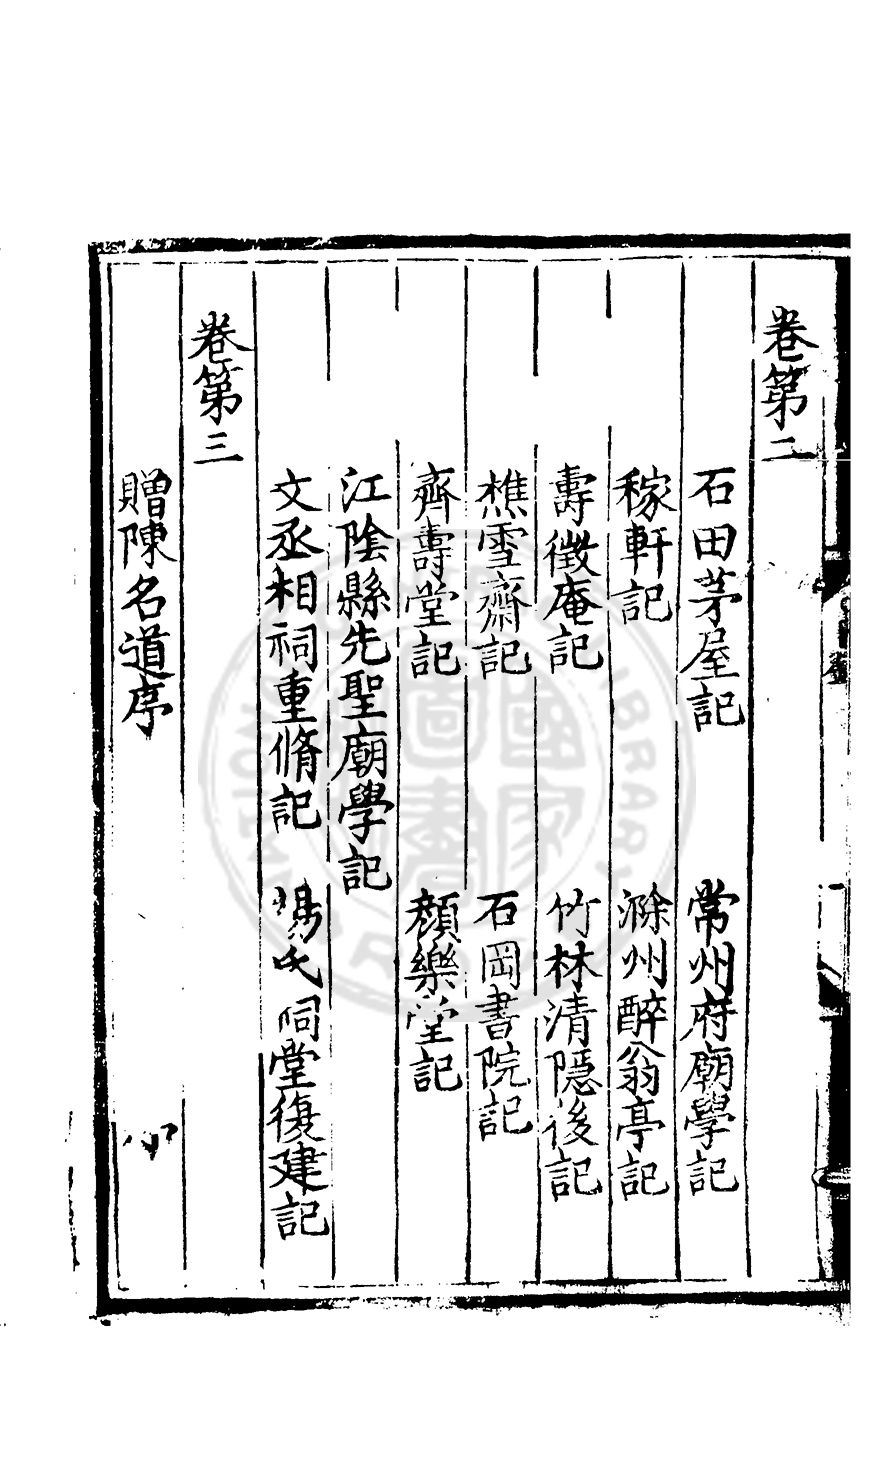 卷第二
石田茅屋記　常州府廟學記
稼軒記　滁州醉翁亭記
壽徵庵記　竹林清隱後記
樵雪齋記　石岡書院記
齊壽堂記　顏樂堂記
江陰縣先聖廟學記
文丞相祠重脩記　楊氏祠堂復建記
卷第三
贈陳名道序